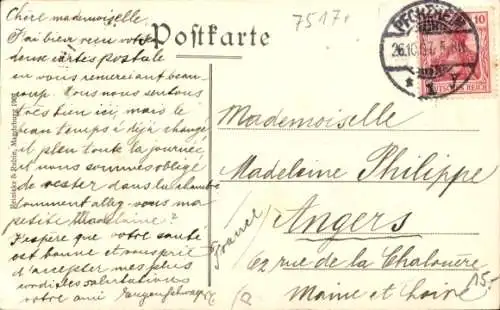 Chère mademoiselle,
J'ai bien reçu votre
deux cartes postale
en vous remerciant beau-
coup. Nous nous sentons
très bien ici, mais le
beau temps à déjà changé,
il pleu toute la journée
et nous sommes obligé
de rester dans la chambre
Comment allez-vous ma
petite Madelaine?
J'espère que votre santé
est bonne et vous prie
d'accepter mes plus
cordiales salutations
votre ami
7517
Postkarte
PFORZHEIM
26.10.
10
DEUTSCHES REICH
Mademoiselle
Madeleine Philippe
Angers
(France)
62 rue de la Chalouère
Maine et Loire
15.-
Magdeburg